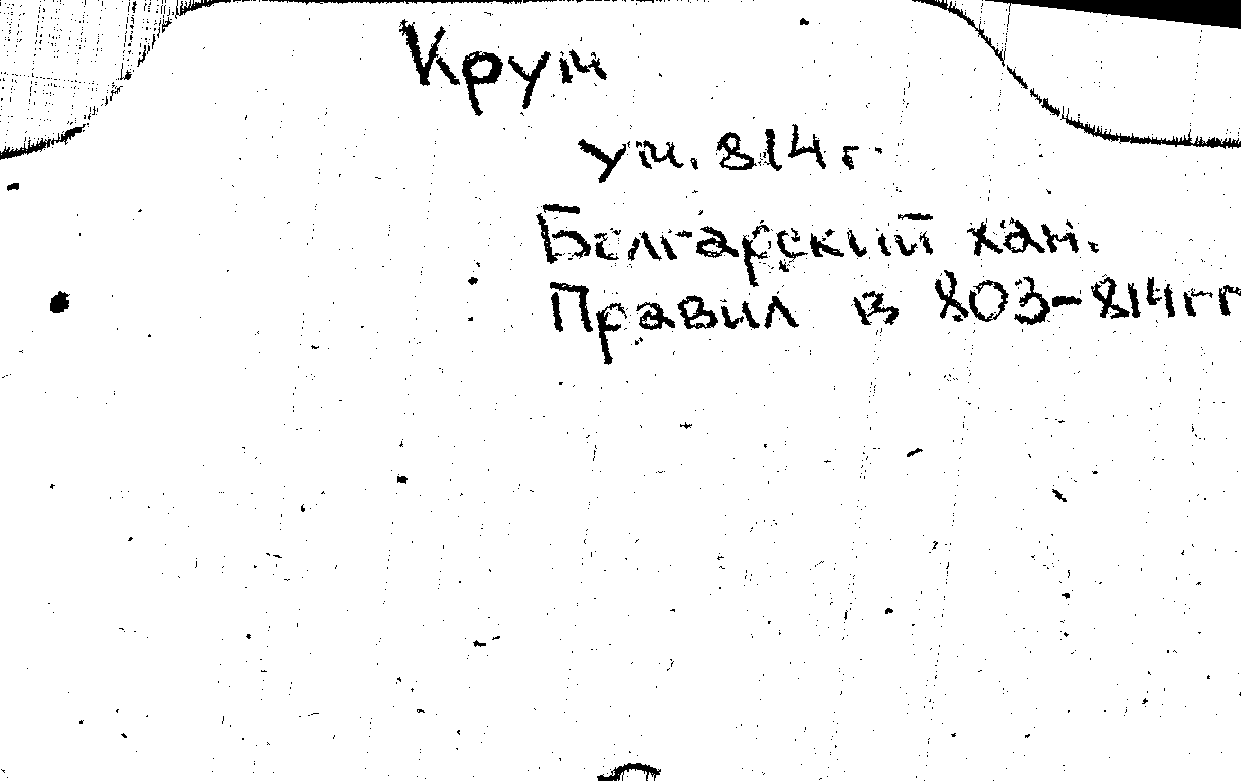 Крум
ум. 814 г.
Болгарский хан.
Правил в 803-814гг